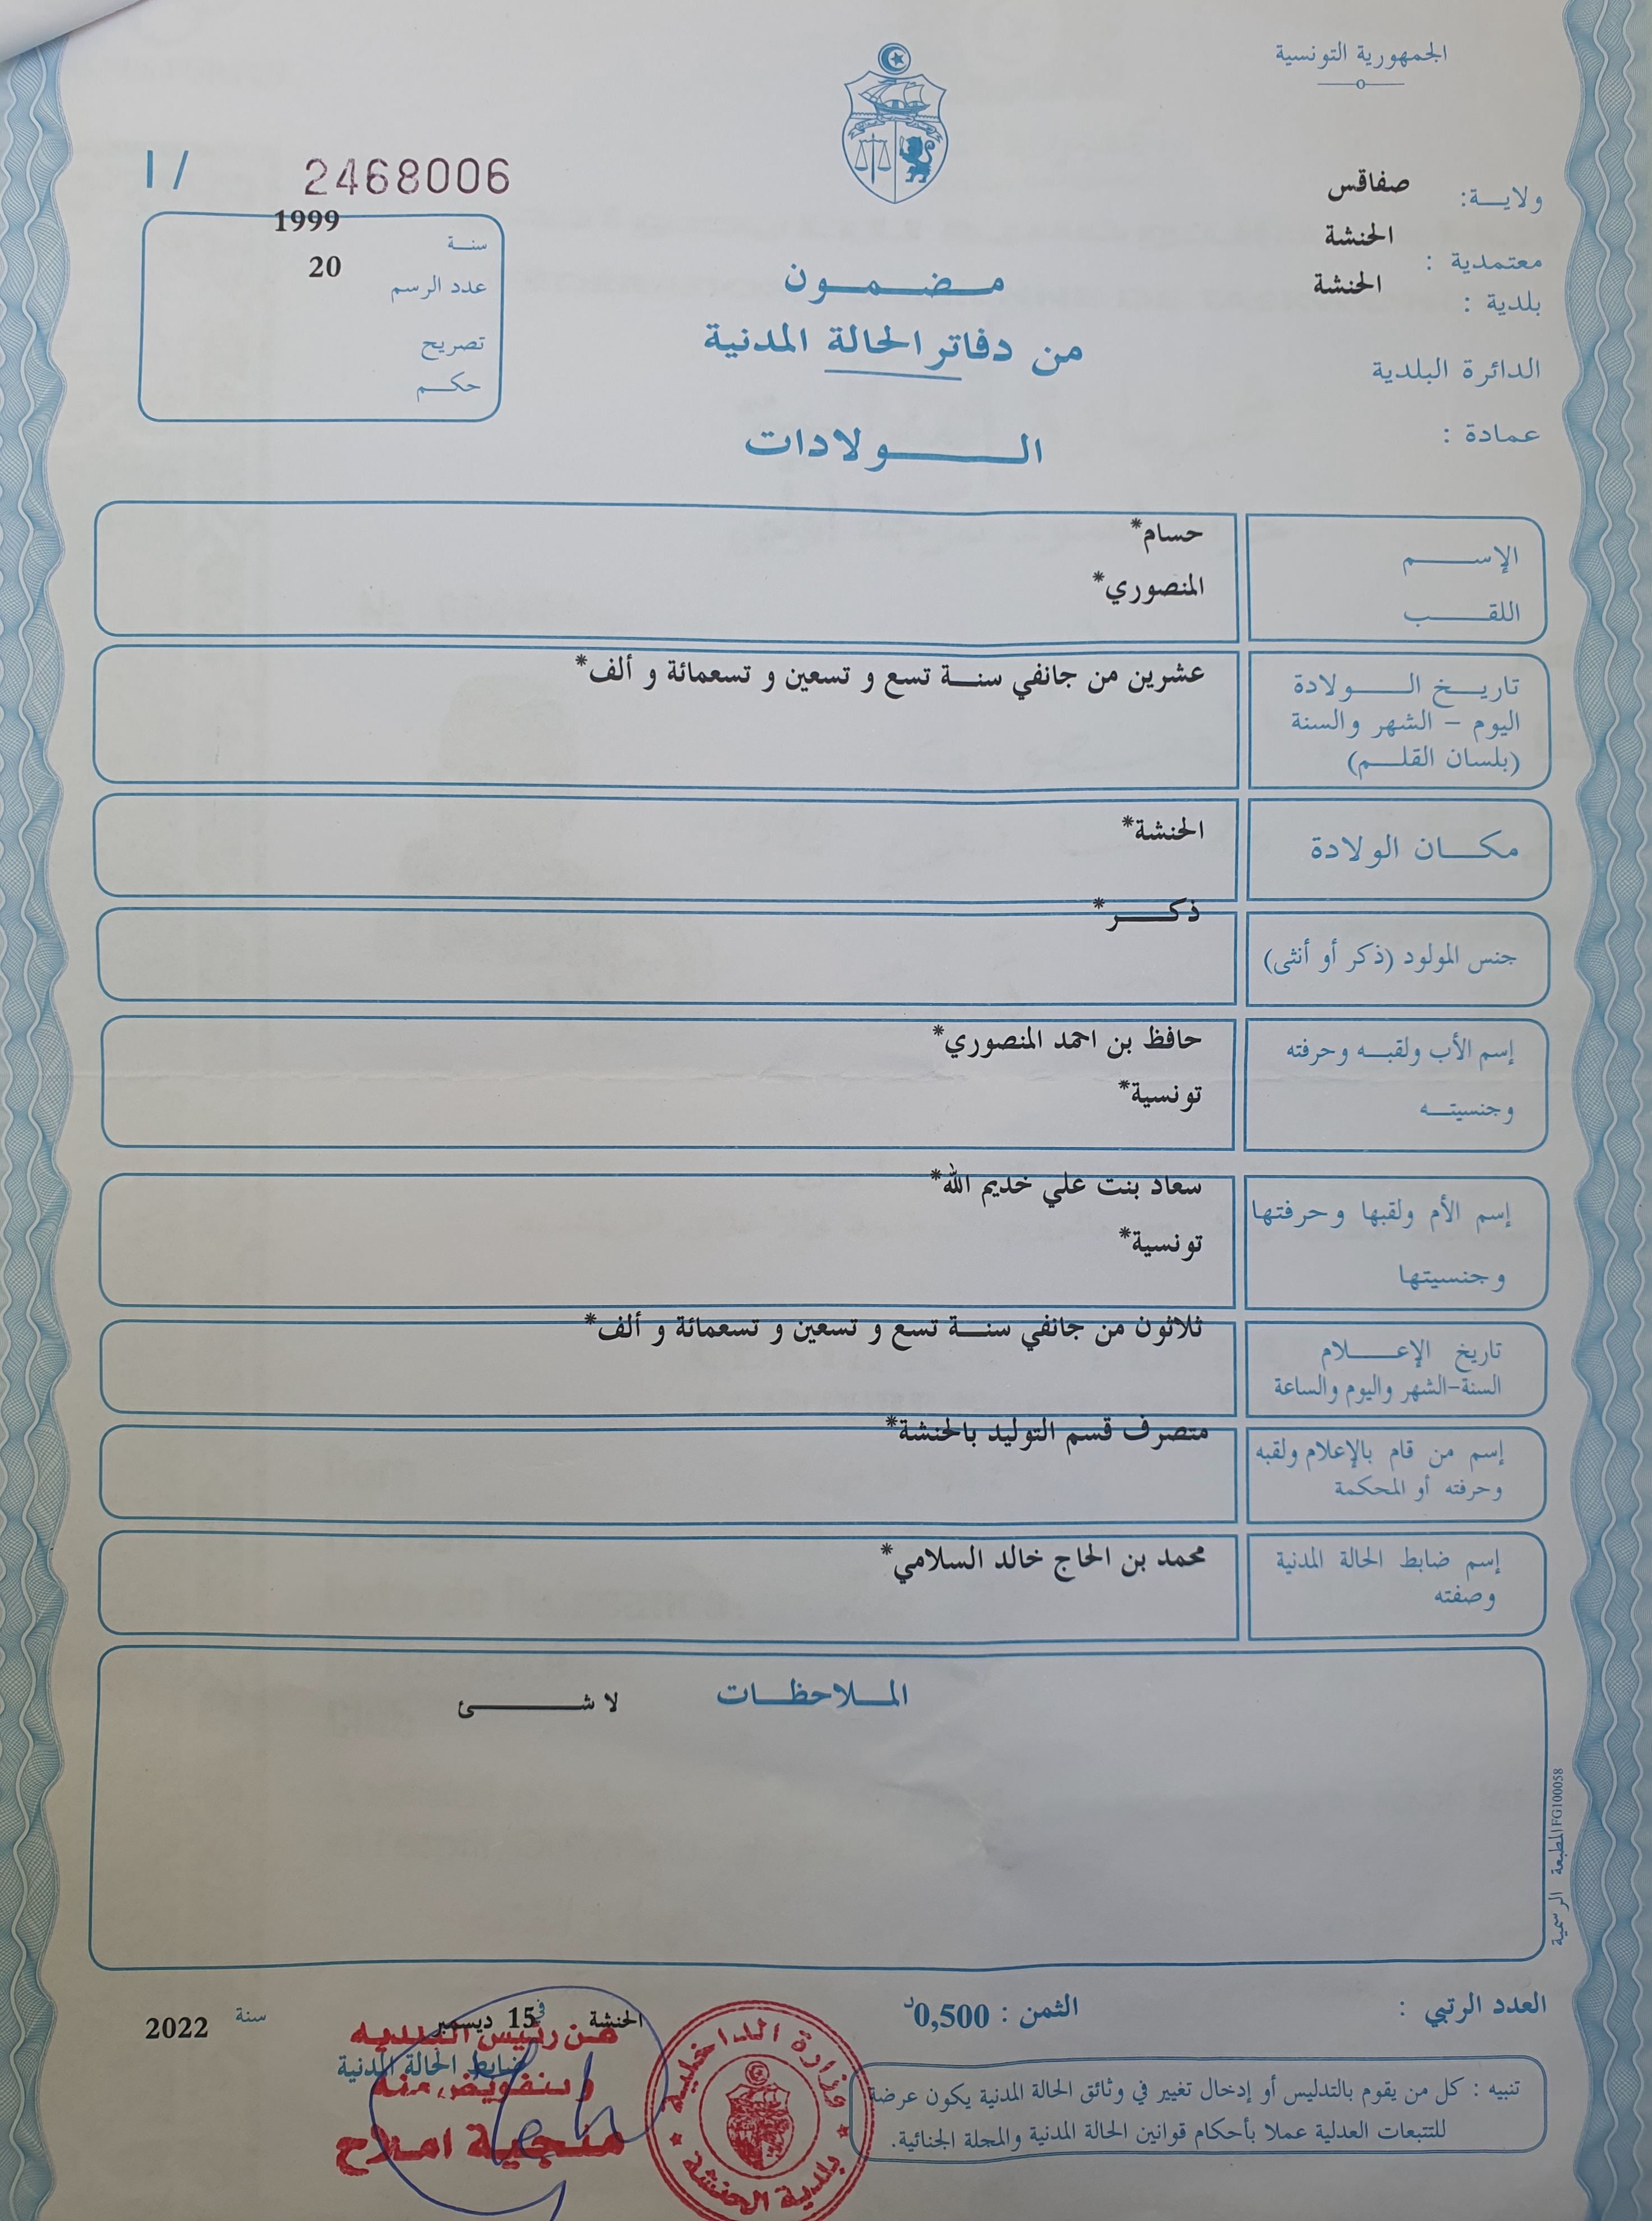 الجمهورية التونسية
ولايـــة: صفاقس
معتمدية : الحنشة
بلدية : الحنشة
الدائرة البلدية
عمادة :
I / 2468006
سنــة 1999
عدد الرسم 20
تصريح
حكــم
مـــضـــمـــون
من دفاتر الحالة المدنية
الــــــــولادات
الإســـــــم حسام*
اللقـــــــب المنصوري*
تاريـــخ الـــــولادة عشرين من جانفي سنـــة تسع و تسعين و تسعمائة و ألف*
اليوم - الشهر والسنة
(بلسان القلـــم)
مكـــان الولادة الحنشة*
جنس المولود (ذكر أو أنثى) ذكـــــر*
إسم الأب ولقبــه وحرفته حافظ بن احمد المنصوري*
وجنسيتــه تونسية*
إسم الأم ولقبها وحرفتها سعاد بنت علي خديم الله*
وجنسيتها تونسية*
تاريخ الإعــــلام ثلاثون من جانفي سنـــة تسع و تسعين و تسعمائة و ألف*
السنة-الشهر واليوم والساعة
إسم من قام بالإعلام ولقبه متصرف قسم التوليد بالحنشة*
وحرفته أو المحكمة
إسم ضابط الحالة المدنية محمد بن الحاج خالد السلامي*
وصفته
المــلاحظــات
لا شـــــــئ
المطبعة الرسمية FG100058
العدد الرتبي :
الثمن : 0,500د
الحنشة في 15 ديسمبر سنة 2022
عن رئيس البلدية
ضابط الحالة المدنية
وبتفويض منه
منجية املاح
وزارة الداخلية
بلدية الحنشة
تنبيه : كل من يقوم بالتدليس أو إدخال تغيير في وثائق الحالة المدنية يكون عرضة
للتتبعات العدلية عملا بأحكام قوانين الحالة المدنية والمجلة الجنائية.